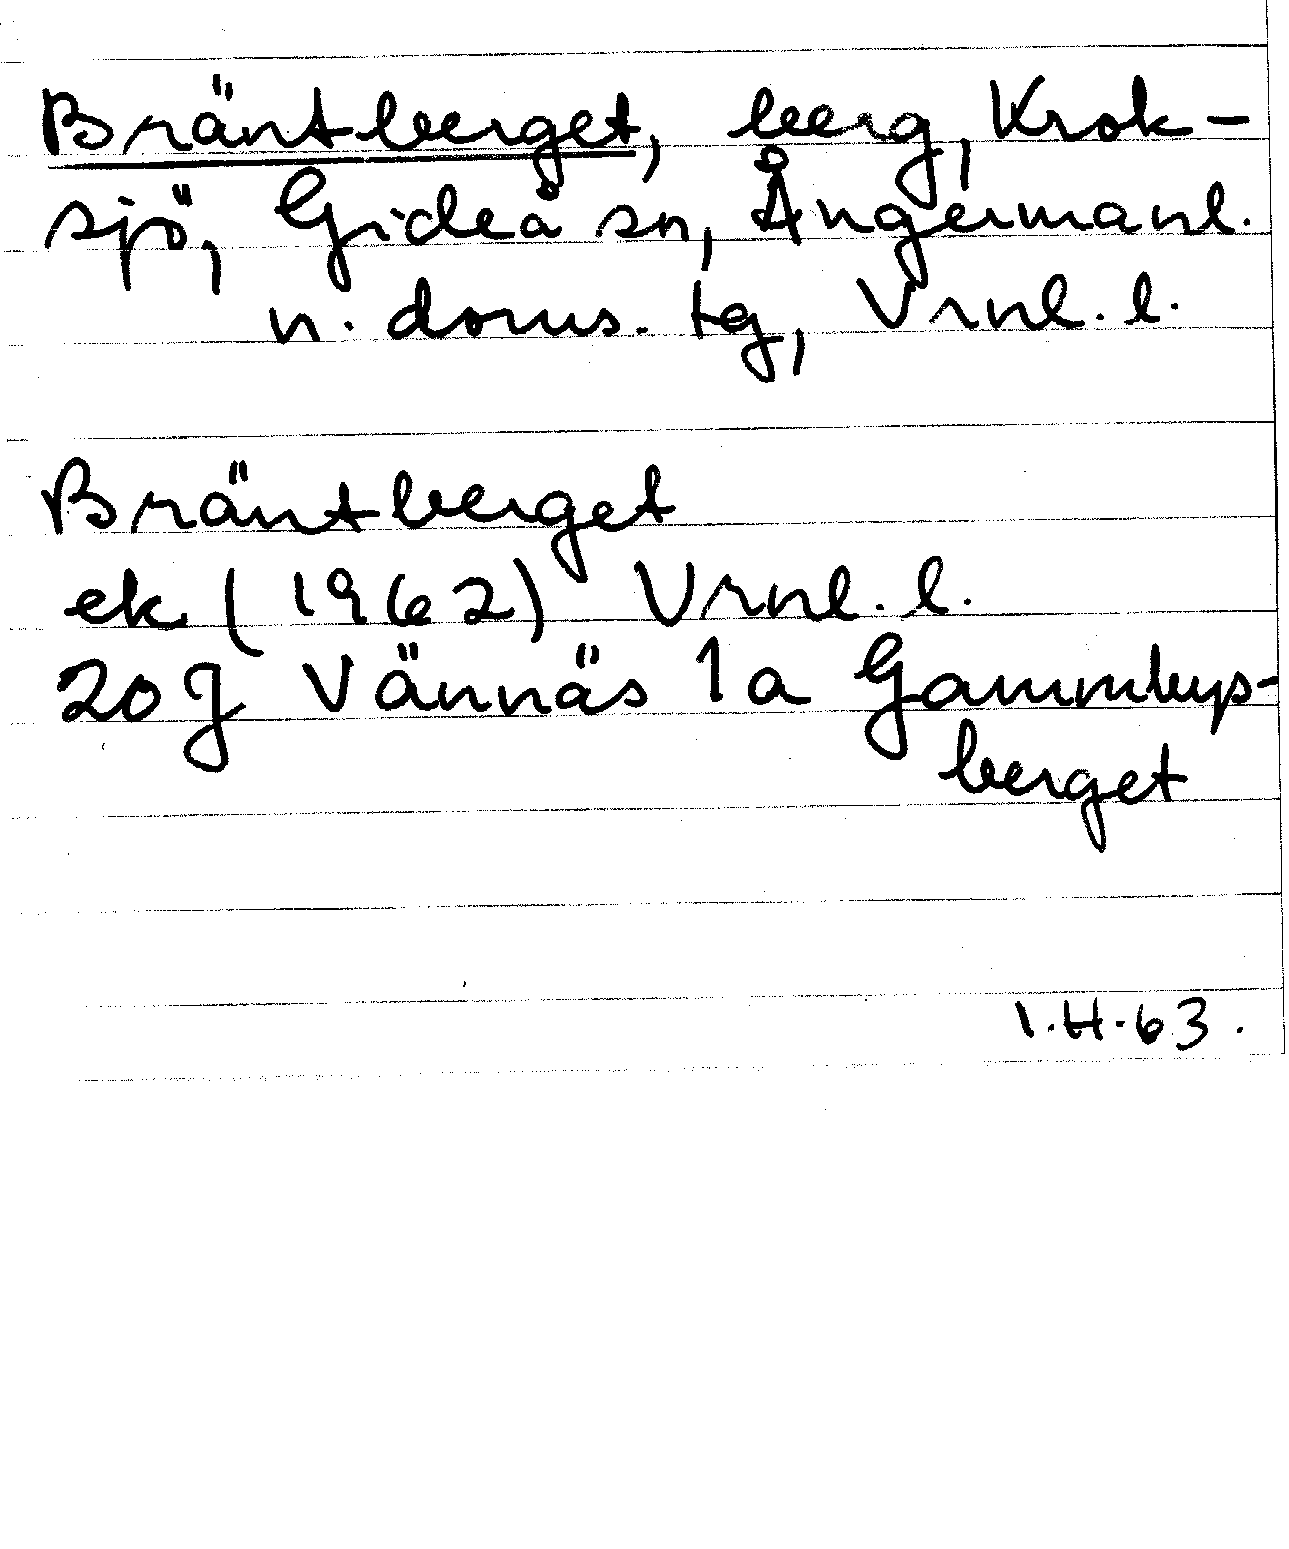 Bräntberget, berg, Krok-
sjö, Gideå sn, Ångermanl.
n. doms. tg, Vrnl. l.
Bräntberget
ek (1962) Vrnl. l.
20 J Vännäs 1a Gammbys-
berget
I.H.63.